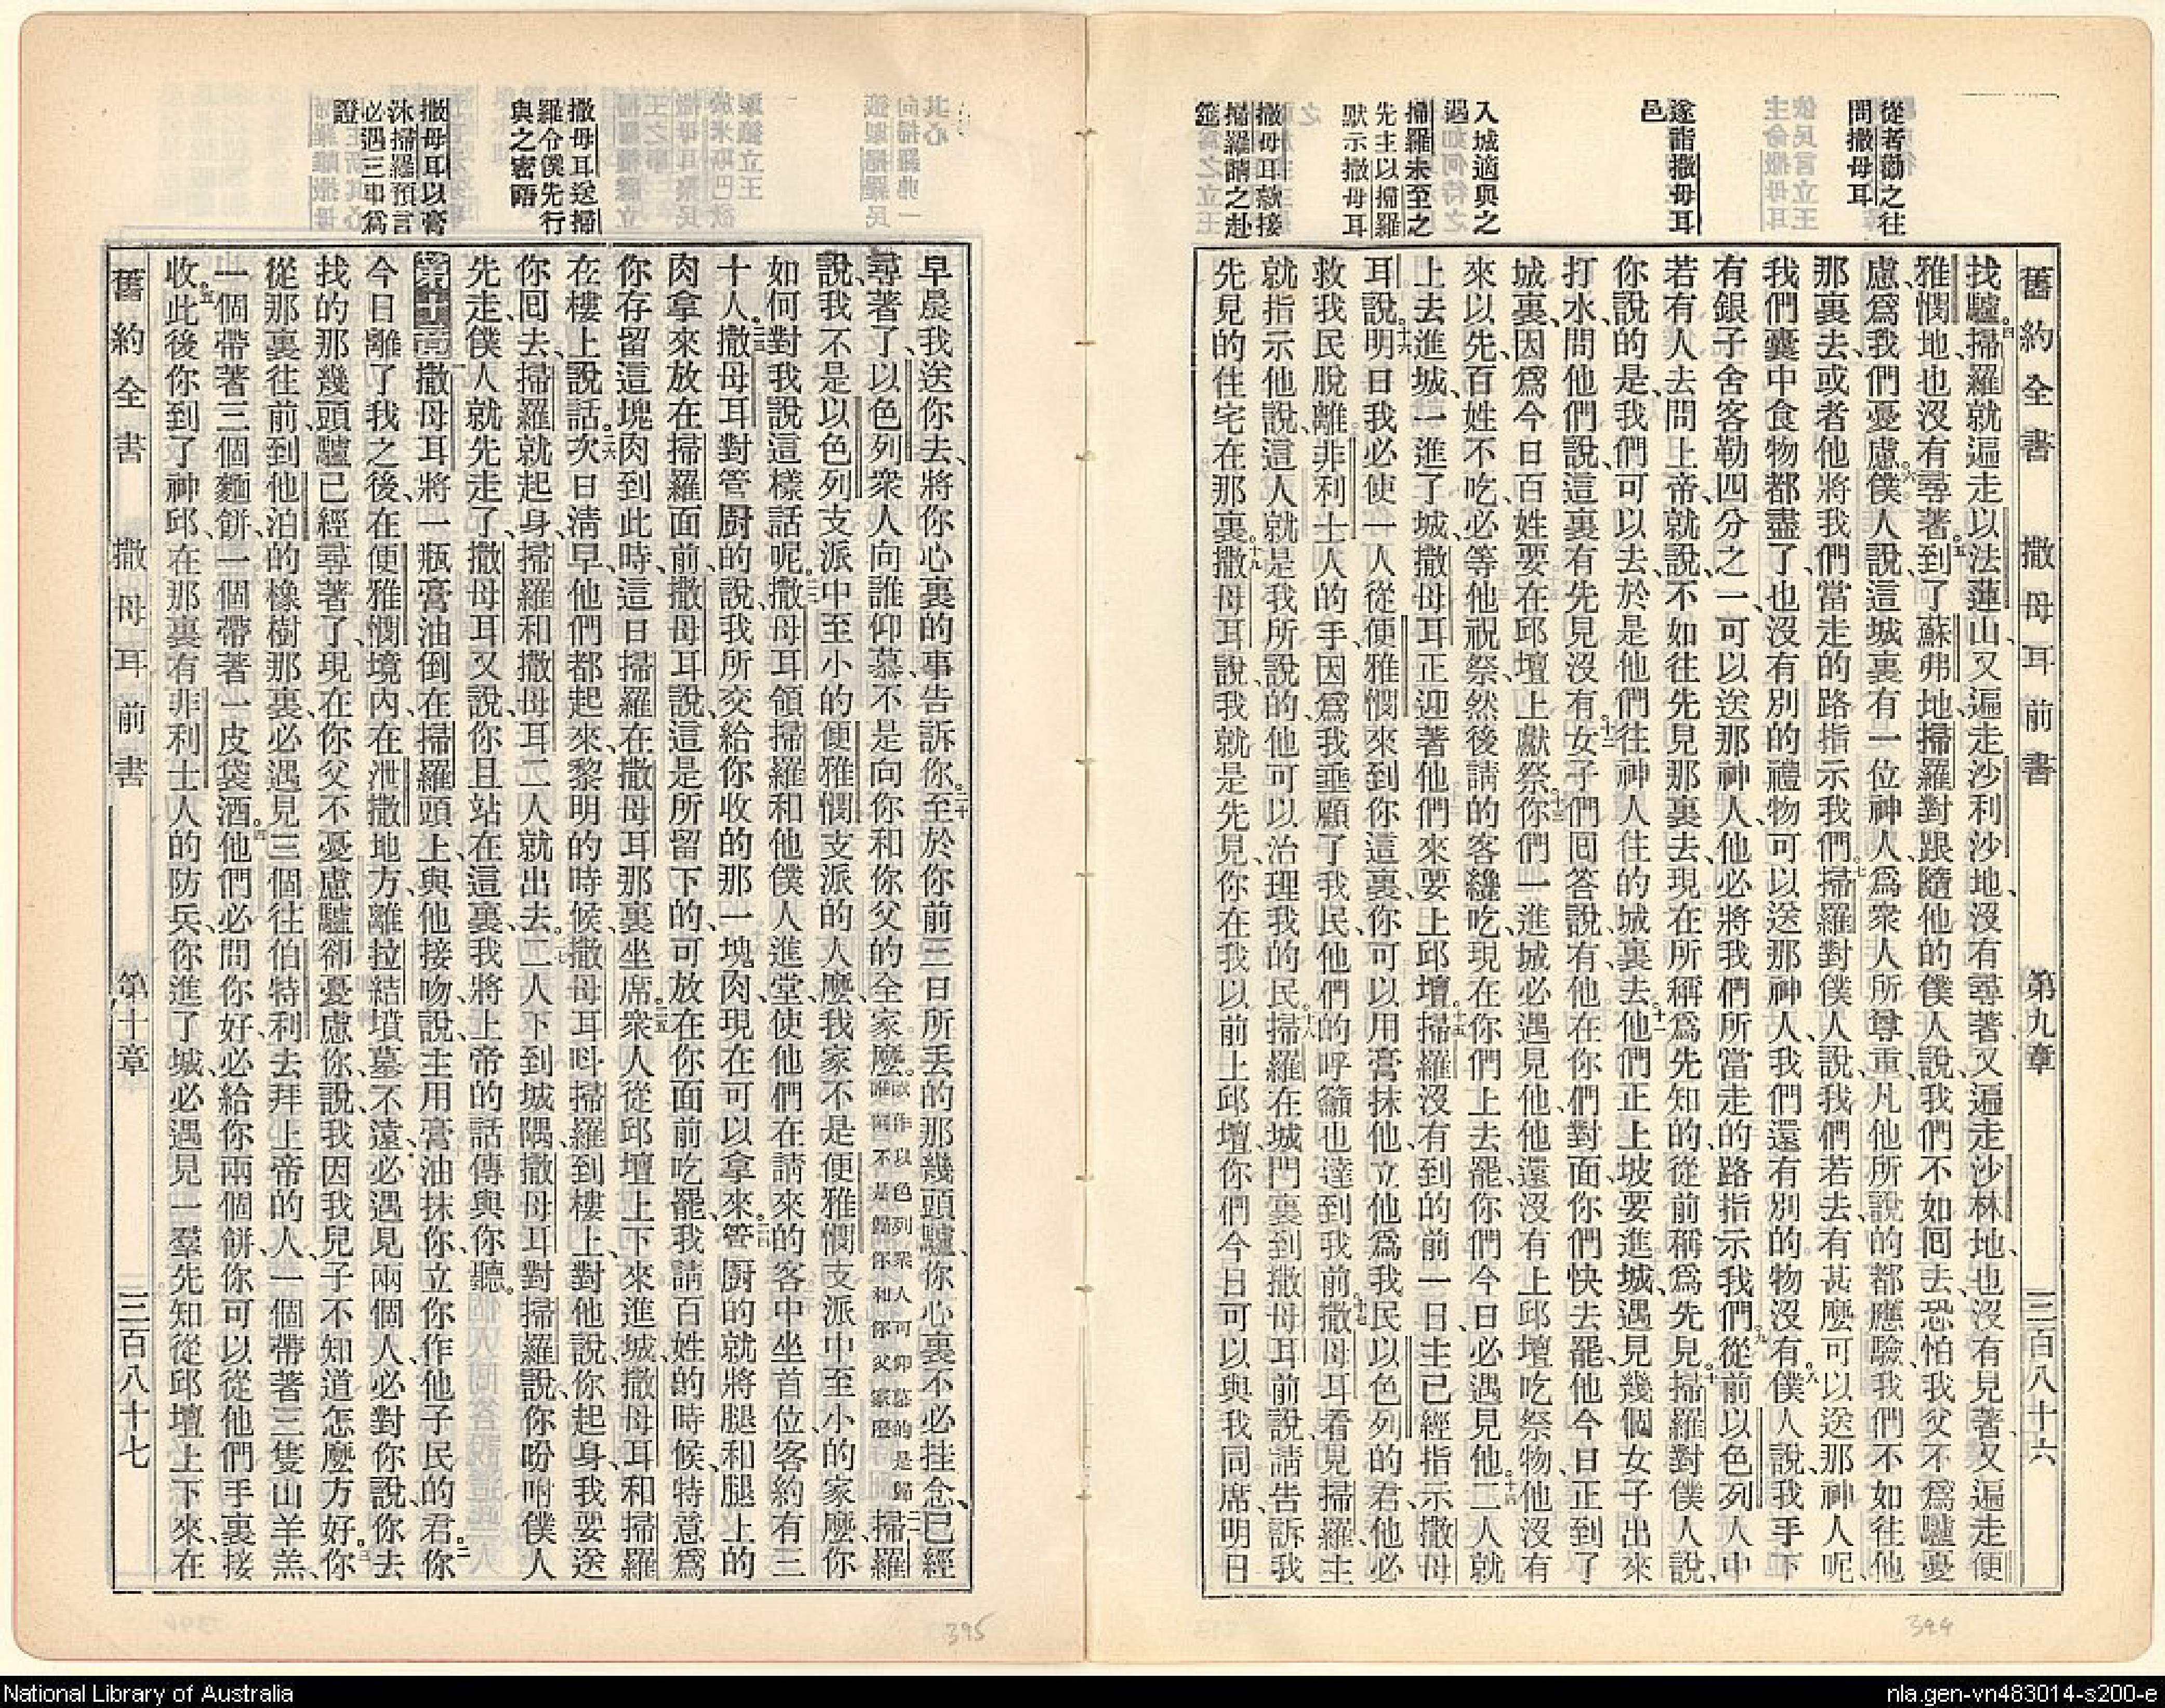 從者勸之往
問撒母耳
遂詣撒母耳
邑
入城適與之
遇
掃羅未至之
先主以掃羅
默示撒母耳
撒母耳就接
掃羅請之赴
筵
舊約全書 撒母耳前書 第九章 三百八十六
找驢。四掃羅就遍走以法蓮山、又遍走沙利沙地、沒有尋著、又遍走沙林地、也沒有見著、又遍走便
雅憫地、也沒有尋著。五到了蘇弗地、掃羅對跟隨他的僕人說、我們不如囘去、恐怕我父不爲驢憂
慮、爲我們憂慮。六僕人說、這城裏有一位神人、爲衆人所尊重、凡他所說的都應驗、我們不如往他
那裏去、或者他將我們當走的路指示我們。七掃羅對僕人說、我們若去、有甚麽可以送那神人呢、
我們囊中食物都盡了、也沒有別的禮物可以送那神人、我們還有別的物沒有。八僕人說、我手下
有銀子舍客勒四分之一、可以送那神人、他必將我們所當走的路指示我們。九從前以色列人中、
若有人去問上帝、就說、不如往先見那裏去、現在所稱爲先知的、從前稱爲先見。十掃羅對僕人說、
你說的是、我們可以去、於是他們往神人住的城裏去。十一他們正上坡要進城、遇見幾個女子出來
打水、問他們說、這裏有先見沒有。十二女子們囘答說、有、他在你們對面、你們快去罷、他今日正到了
城裏、因爲今日百姓要在邱壇上獻祭。十三你們一進城必遇見他、他還沒有上邱壇吃祭物、他沒有
來以先、百姓不吃、必等他祝祭、然後請的客纔吃、現在你們上去罷、你們今日必遇見他。十四二人就
上去進城、一進了城、撒母耳正迎著他們來、要上邱壇。十五掃羅沒有到的前一日、主已經指示撒母
耳說。十六明日我必使一人從便雅憫來到你這裏、你可以用膏抹他、立他爲我民以色列的君、他必
救我民脫離非利士人的手、因爲我垂顧了我民、他們的呼籲也達到我前。十七撒母耳看見掃羅、主
就指示他說、這人就是我所說的、他可以治理我的民。十八掃羅在城門裏到撒母耳前說、請告訴我
先見的住宅在那裏。十九撒母耳說、我就是先見、你在我以前上邱壇、你們今日可以與我同席、明日
撒母耳送掃
羅令僕先行
與之密語
撒母耳以膏
沐掃羅預言
必遇三事爲
證
早晨我送你去、將你心裏的事告訴你。二十至於你前三日所丟的那幾頭驢、你心裏不必挂念、已經
尋著了、以色列衆人向誰仰慕、不是向你和你父的全家麽。或作以色列衆人可仰慕的是歸誰兩不是歸你和你父家麽二一掃羅
說、我不是以色列支派中至小的便雅憫支派的人麽、我家不是便雅憫支派中至小的家麽、你
如何對我說這樣話呢。二二撒母耳領掃羅和他僕人進堂、使他們在請來的客中坐首位、客約有三
十人。二三撒母耳對管廚的說、我所交給你收的那一塊肉、現在可以拿來。二四管廚的就將腿和腿上的
肉拿來放在掃羅面前、撒母耳說、這是所留下的、可放在你面前吃罷、我請百姓的時候、特意爲
你存留這塊肉到此時、這日掃羅在撒母耳那裏坐席。二五衆人從邱壇上下來進城、撒母耳和掃羅
在樓上說話。二六次日淸早、他們都起來、黎明的時候、撒母耳呌掃羅到樓上、對他說、你起身、我要送
你囘去、掃羅就起身、掃羅和撒母耳二人就出去。二七二人下到城隅、撒母耳對掃羅說、你吩咐僕人
先走、僕人就先走了、撒母耳又說、你且站在這裏、我將上帝的話傳與你聽。
第十章一撒母耳將一瓶膏油倒在掃羅頭上、與他接吻、說、主用膏油抹你、立你作他子民的君。二你
今日離了我之後、在便雅憫境內、在泄撒地方、離拉結墳墓不遠、必遇見兩個人、必對你說、你去
找的那幾頭驢已經尋著了、現在你父不憂慮驢、卻憂慮你、說、我因我兒子不知道怎麽方好。三你
從那裏往前、到他泊的橡樹那裏、必遇見三個往伯特利去拜上帝的人、一個帶著三隻山羊羔、
一個帶著三個麵餅、一個帶著一皮袋酒。四他們必問你好、必給你兩個餅、你可以從他們手裏接
收。五此後你到了神邱、在那裏有非利士人的防兵、你進了城、必遇見一羣先知從邱壇上下來、在
舊約全書 撒母耳前書 第十章 三百八十七
395
394
National Library of Australia
nla.gen-vn483014-s200-e